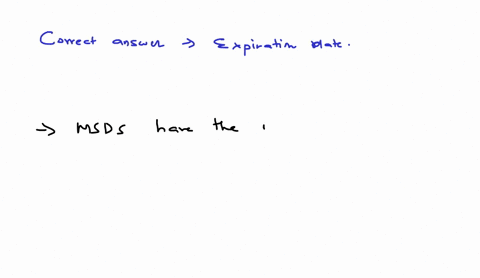 Correct answer → Expiration date.
→ MSDS have the